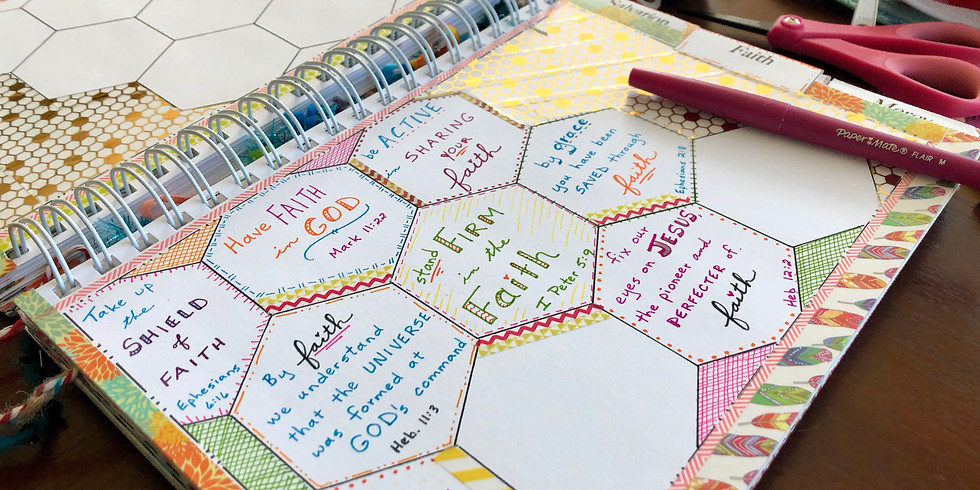 Salvation
Faith
Paper Mate® FLAIR M
be ACTIVE
in SHARING
YOUR
faith
by grace
you have been
SAVED through
faith
Ephesians 2:8
Have FAITH
in GOD
Mark 11:22
stand FIRM
in the
Faith
I Peter 5:9
fix our
eyes on JESUS
the pioneer and
PERFECTER of
faith
Heb 12:2
Take up
the
SHIELD
of
FAITH
Ephesians
6:16
By faith
we understand
that the UNIVERSE
was formed at
GOD's command
Heb. 11:3